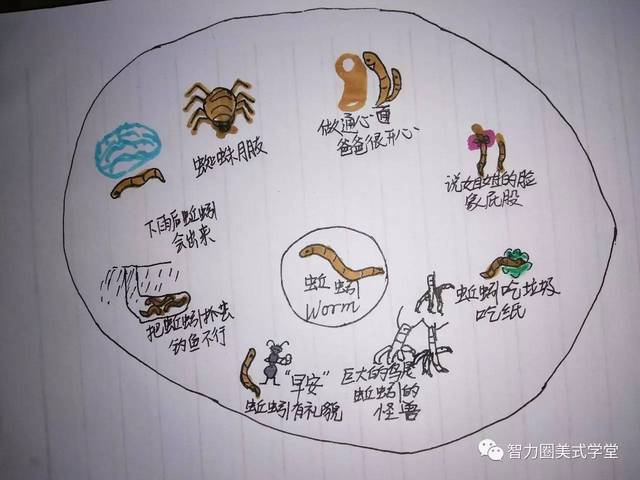 做通心面
爸爸很开心
蜘蛛
说姐姐的脸
象屁股
下雨后蚯蚓
会出来
蚯蚓
Worm
蚯蚓吃垃圾
吃纸
把蚯蚓抓去
钓鱼不行
“早安”
蚯蚓有礼貌
巨大的鸟是
蚯蚓的
怪兽
智力圈美式学堂